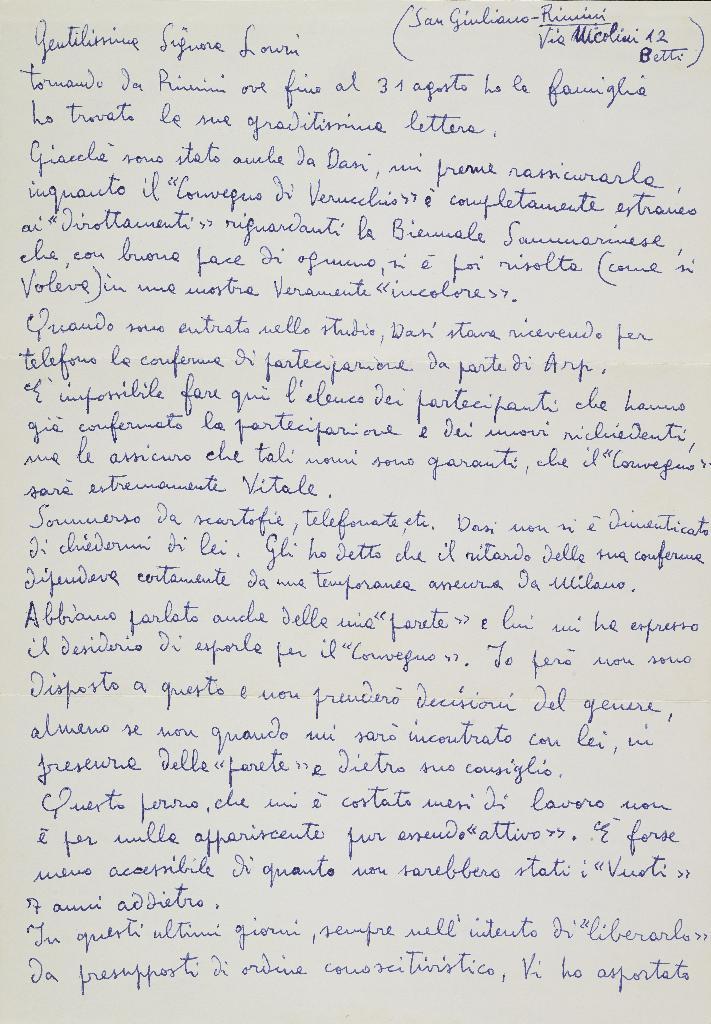 (San Giuliano-Rimini
Via Nicolini 12
Betti)
Gentilissima Signora Lonzi
tornando da Rimini ove fino al 31 agosto ho la famiglia
ho trovato la sua graditissima lettera.
Giacchè sono stato anche da Dasi, mi preme rassicurarla,
inquanto il "Convegno di Verucchio" è completamente estraneo
ai "dirottamenti" riguardanti la Biennale Sammarinese,
che, con buona pace di ognuno, si è poi risolta (come si
Voleva) in una mostra Veramente "incolore".
Quando sono entrato nello studio, Dasi stava ricevendo per
telefono la conferma di partecipazione da parte di Arp.
È impossibile fare qui l'elenco dei partecipanti che hanno
già confermato la partecipazione e dei nuovi richiedenti,
ma le assicuro che tali nomi sono garanti, che il "Convegno"
sarà estremamente Vitale.
Sommerso da scartofie, telefonate, etc. Dasi non si è dimenticato
di chiedermi di lei. Gli ho detto che il ritardo della sua conferma
dipendeva certamente da una temporanea assenza da Milano.
Abbiamo parlato anche della mia "parete" e lui mi ha espresso
il desiderio di esporla per il "Convegno". Io però non sono
disposto a questo e non prenderò decisioni del genere,
almeno se non quando mi sarò incontrato con lei, in
presenza della "parete" e dietro suo consiglio.
Questo pezzo, che mi è costato mesi di lavoro non
è per nulla appariscente pur essendo "attivo". È forse
meno accessibile di quanto non sarebbero stati i "Vuoti"
7 anni addietro.
In questi ultimi giorni, sempre nell'intento di "liberarlo"
da presupposti di ordine conoscitivistico, Vi ho asportato